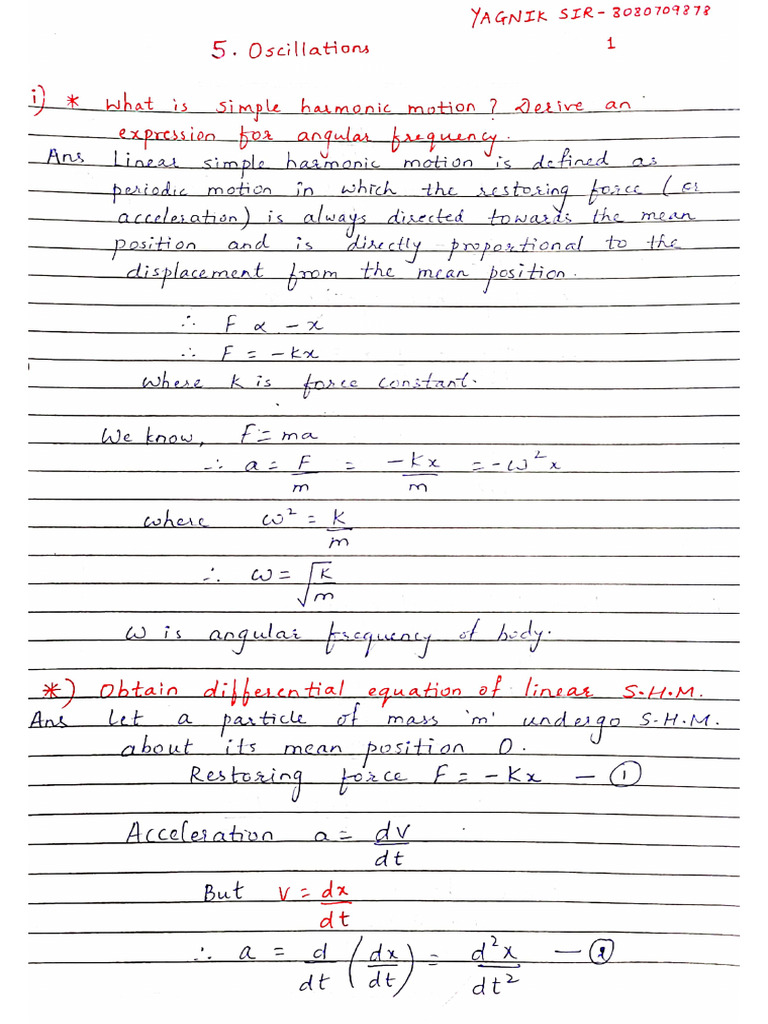 YAGNIK SIR - 8080709878
5. Oscillations
1
i) * What is simple harmonic motion? Derive an
expression for angular frequency.
Ans Linear simple harmonic motion is defined as
periodic motion in which the restoring force (or
acceleration) is always directed towards the mean
position and is directly proportional to the
displacement from the mean position.
∴ F ∝ -x
∴ F = -Kx
Where K is force constant.
We know, F = ma
∴ a = F/m = -Kx/m = -ω²x
where ω² = K/m
∴ ω = √K/√m
ω is angular frequency of body.
*) Obtain differential equation of linear S.H.M.
Ans Let a particle of mass 'm' undergo S.H.M.
about its mean position O.
Restoring force F = -Kx — ①
Acceleration a = dv/dt
But v = dx/dt
∴ a = d/dt (dx/dt) = d²x/dt² — ②